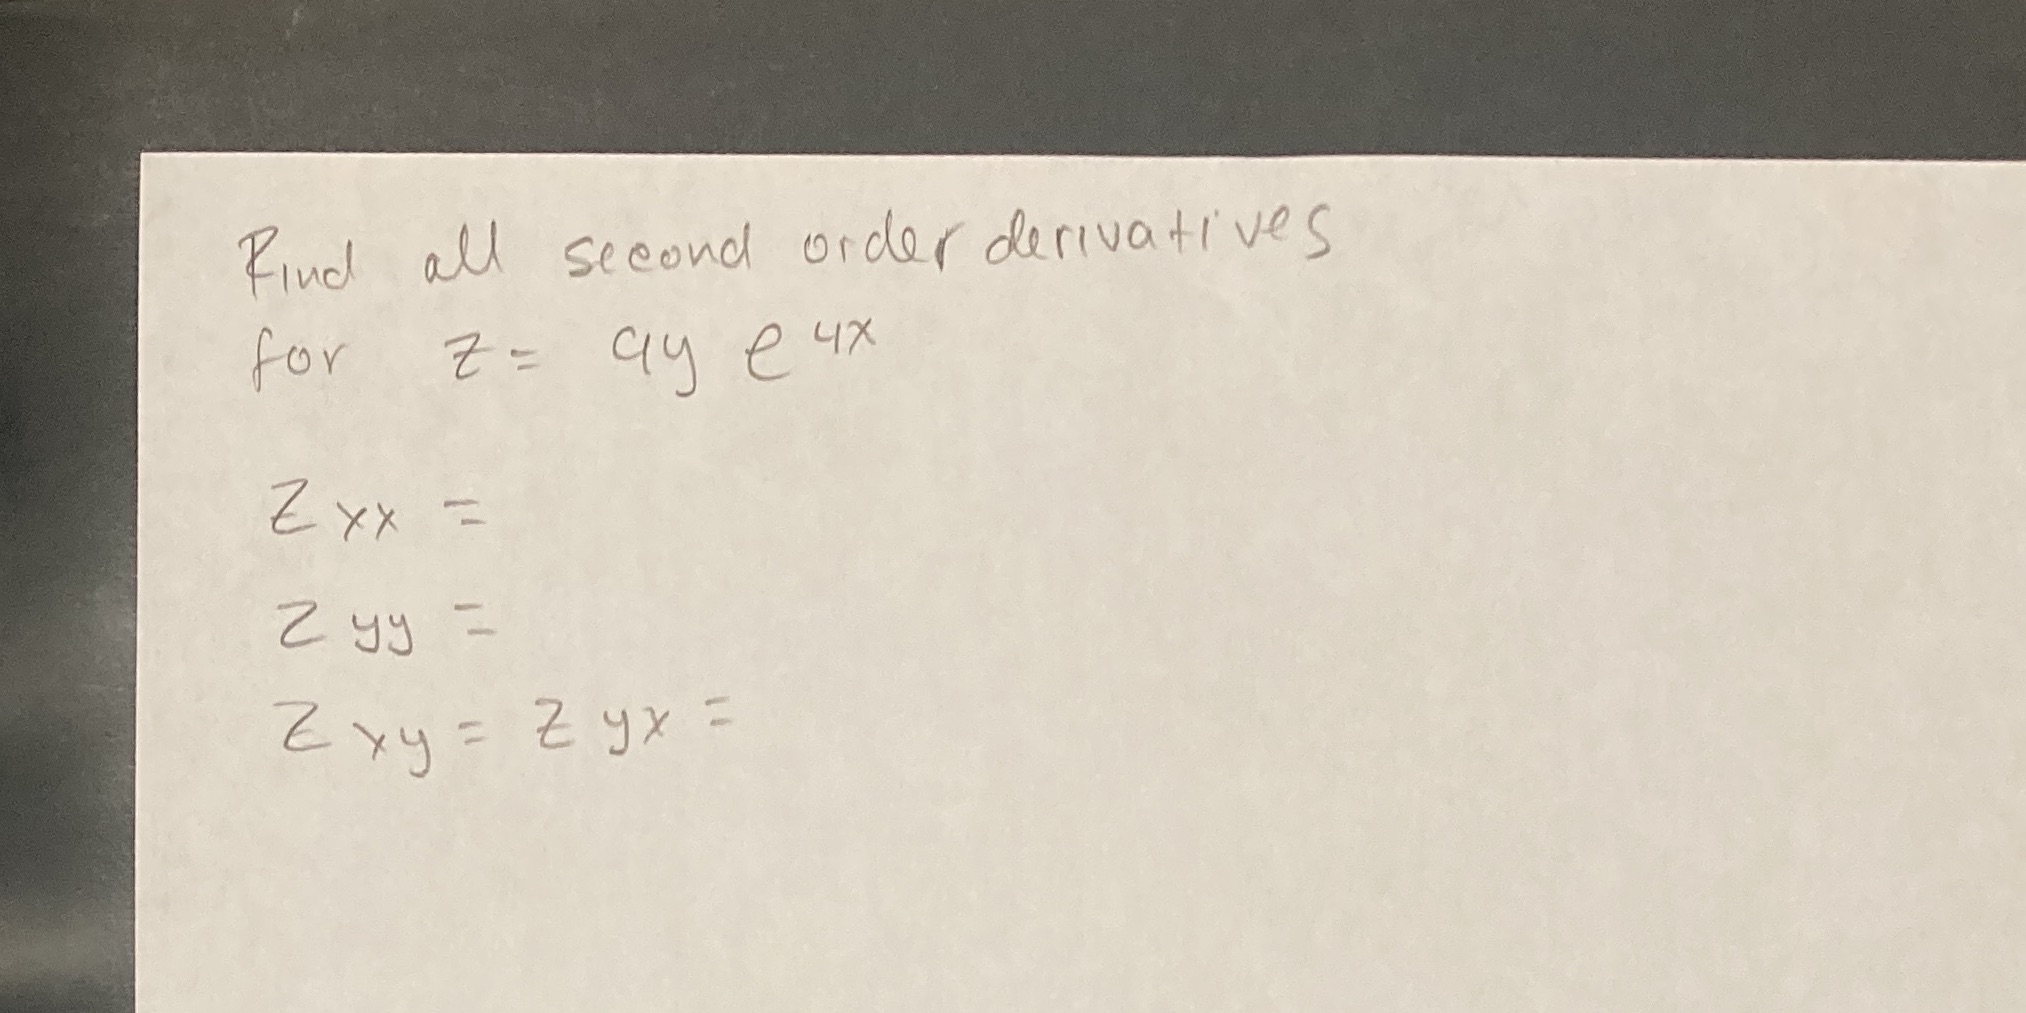 Find all second order derivatives
for z = 9y e^4x
Zxx =
Zyy =
Zxy = Zyx =